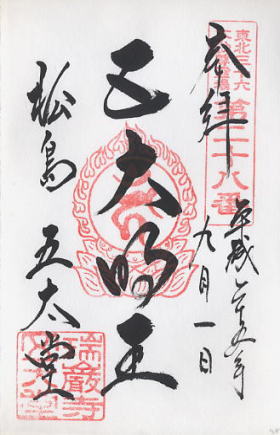 奉拝
東北三十六
第二十八番
平成二十五年
九月一日
五大明王
松島 五太堂
瑞巌寺